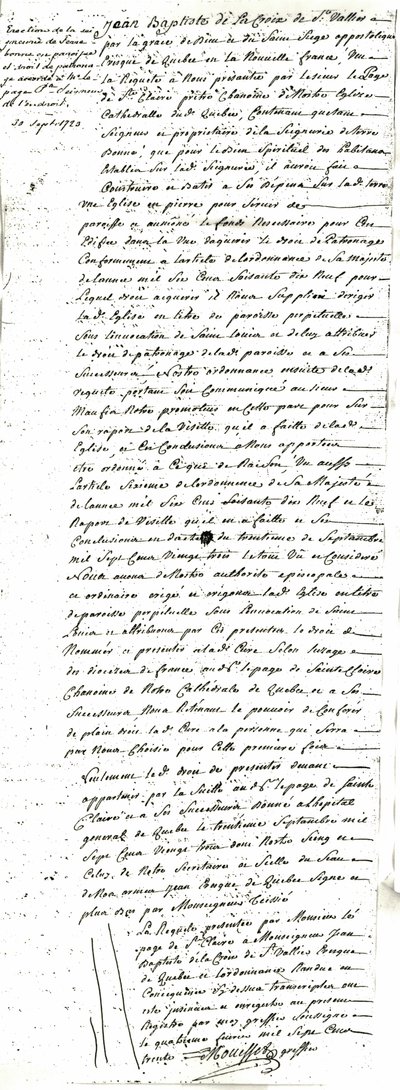 Erection de la sei
gneurie de Terre
bonne en paroisse
et droit de patrona
ge acordé à Mr le
page Ste Claire seigneur
de l'endroit,
30 Sept. 1723
Jean Baptiste de La Croix de St Vallier
par la grace de Dieu et du Saint Siege appostolique
Evesque de Quebec en la Nouvelle france, Veu
la Requete a Nous presentée par le sieur le Page
de Ste Claire prêtre Chanoine de Nostre Eglise
Cathedralle de Quebec, Contenant quetant
Seigneur et proprietaire de la Seigneurie de terre
Bonne que pour le bien Spirituel des habitans
Establis Sur lad. Seigneurie, il auroit fait
Construire et Batir a Ses Depens Sur lad. terre
une Eglise en pierre pour Servir de
paroisse et aumôné le fonds Necessaire pour Cet
Edifice dans la Vue daquerir le droit de Patronage
Conformement a larticle de lordonnance de Sa Majesté
de lannee mil Six Cens Soixante dix Neuf pour
Lequel droit acquerir il Nous Supplioit deriger
lad. Eglise en titre de paroisse perpetuelle
Sous linvocation de Saint Louis et de luy attribuer
le droit de patronage de lad. paroisse et a Ses
Successeurs Nostre ordonnance ensuite de lad.
requete portant Soit Communiqué au sieur
Maufin Notre promoteur en Cette part pour Sur
Son raport de la Visitte qu'il a faitte de lad.
Eglise et Ses Conclusions a Nous apportees
etre ordonné a Ce que de Raison, Vu aussy
larticle Sixieme de lordonnance de Sa Majesté
de lannee mil Six Cens Soixante dix Neuf et le
Raport de Visitte qu'il en a faitte et Ses
Conclusions en datte du trentieme de Septembre
mil Sept Cens Vingt trois le tout Vu et Consideré
Nous avons de Nostre authorité episcopale
et ordinaire erigé et erigeons lad. Eglise en titre
de paroisse perpetuelle Sous linvocation de Saint
Louis et attribuons par Ces presentes le droit de
Nommer et presenter a lad. Cure Selon lusage
des diocezes de france aud. Sr. le page de Sainte Claire
Chanoine de Notre Cathédrale de Quebec et a Ses
Successeurs, Nous Retenant le pouvoir de Conférer
de plein droit lad. Cure a la personne qui Serra
par Nous Choisie pour Cette premiere fois
Seulement le d. droit de presenter devant
appartenir par la Suitte aud. Sr. le page de Sainte
Claire et a Ses Successeurs Donné a lhopital
general de Quebec le trentieme Septembre mil
Sept Cens Vingt trois Sous Nostre Seing et
Celuy de Notre Secretaire et Scelle du Sceau
de Nos armes Jean Evesque de Quebec Signé et
plus Bas par Monseigneur Teissié
La Requete presentée par Monsieur le
page de Ste Claire a Monseigneur Jean
Baptiste de la Croix de St Vallier Evesque
de Quebec et lordonnance Rendue en
Consequence Cy dessus transcriptes ont
este insinuées et enregistré au present
Registre par moy greffier Soussigné
le quatrieme fevrier mil Sept Cens
trente
greffier